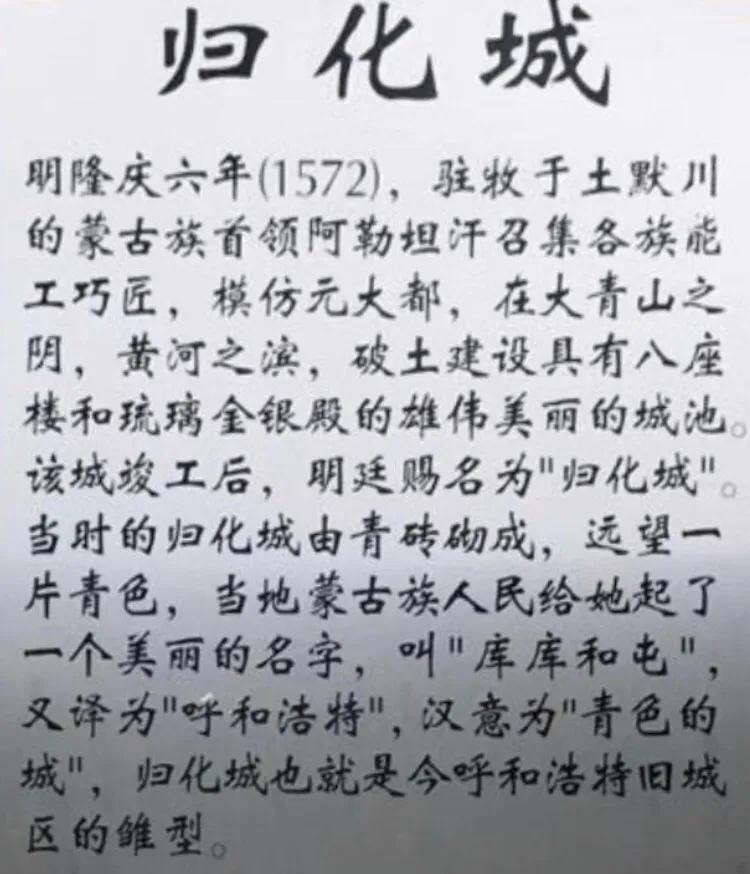 归化城
明隆庆六年(1572)，驻牧于土默川
的蒙古族首领阿勒坦汗召集各族能
工巧匠，模仿元大都，在大青山之
阴，黄河之滨，破土建设具有八座
楼和琉璃金银殿的雄伟美丽的城池。
该城竣工后，明廷赐名为"归化城"。
当时的归化城由青砖砌成，远望一
片青色，当地蒙古族人民给她起了
一个美丽的名字，叫"库库和屯"，
又译为"呼和浩特"，汉意为"青色的
城"，归化城也就是今呼和浩特旧城
区的雏型。